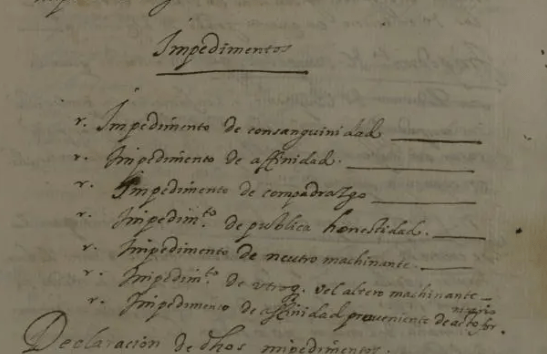 Impedimentos
r. Impedimento de consanguinidad
r. Impedimento de affinidad.
r. Impedimento de compadrazgo
r. Impedim.to de publica honestidad.
r. Impedimento de neutro machinante.
r. Impedim.to de vtroq. vel altero machinante
r. Impedimento de affinidad proveniente de acto
Declaracion de dhos impedimentos.